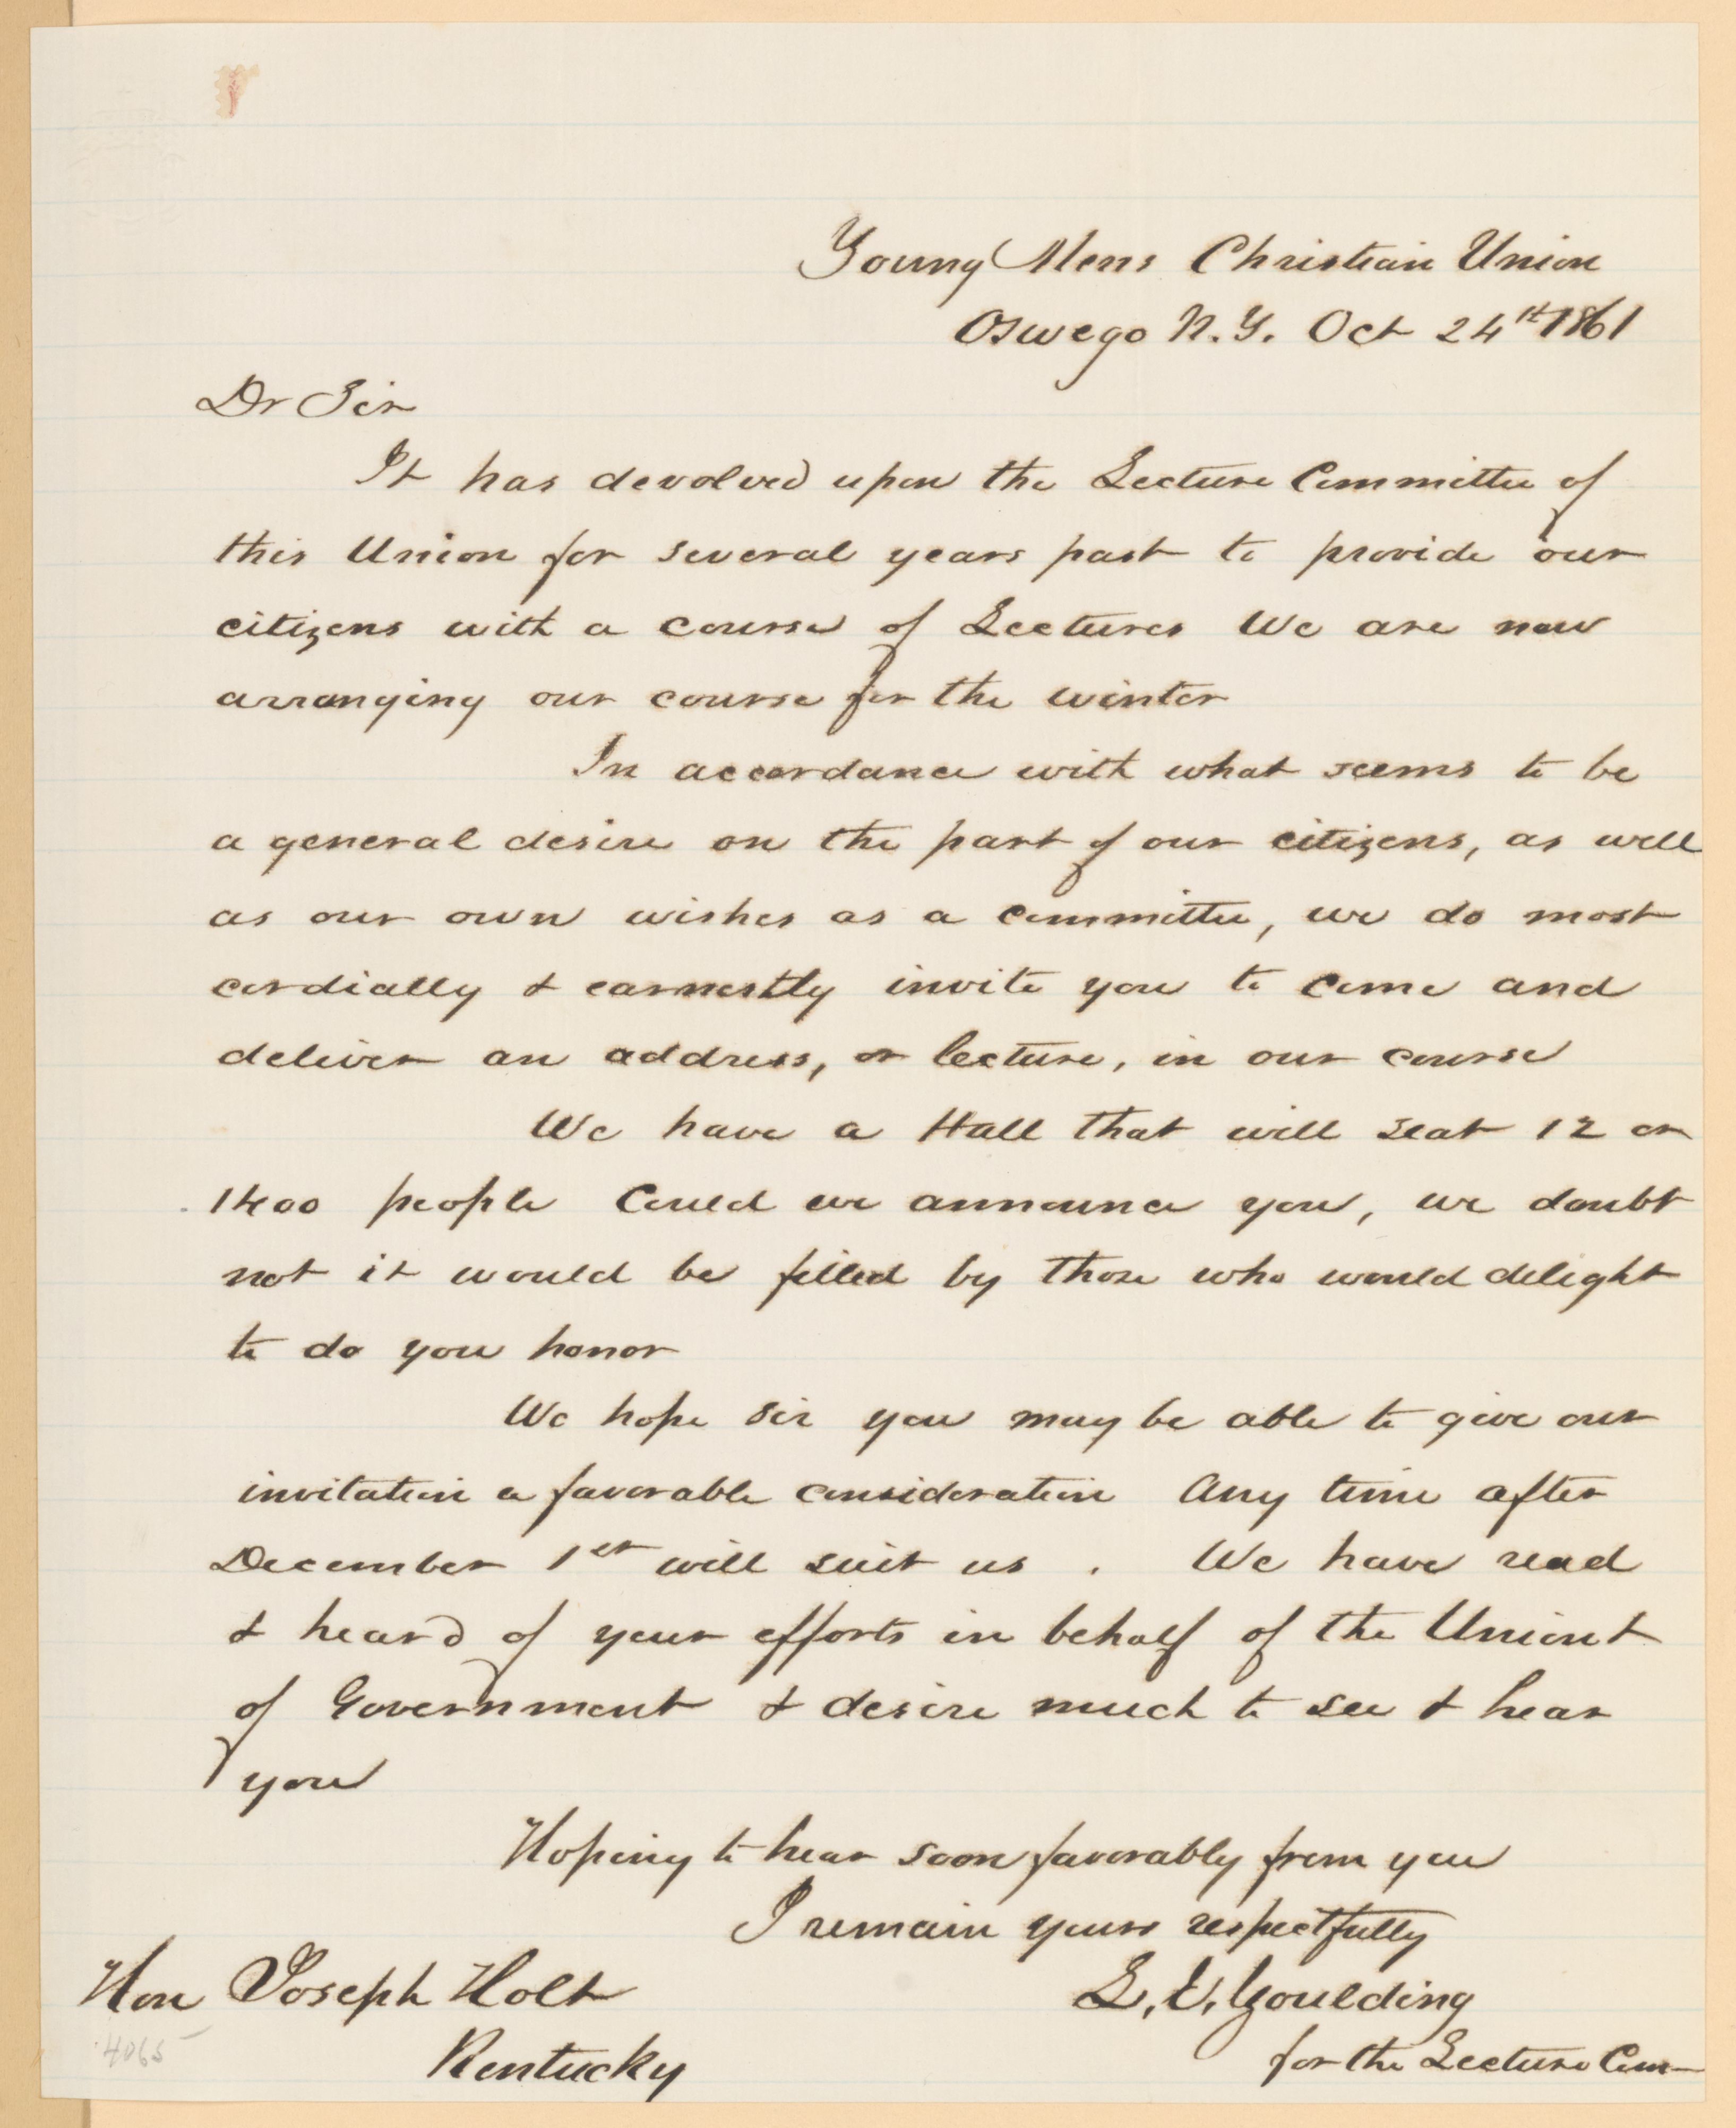 Young Mens Christian Union
Oswego N.Y. Oct 24th 1861
Dr Sir
It has devolved upon the Lecture Committee of
this Union for several years past to provide our
citizens with a course of Lectures We are now
arranging our course for the winter
In accordance with what seems to be
a general desire on the part of our citizens, as well
as our own wishes as a committee, we do most
cordially & earnestly invite you to come and
deliver an address, or lecture, in our course
We have a Hall that will seat 12 or
1400 people Could we announce you, we doubt
not it would be filled by those who would delight
to do you honor
We hope sir you may be able to give our
invitation a favorable consideration Any time after
December 1st will suit us . We have read
& heard of your efforts in behalf of the Union &
of Government & desire much to see & hear
you
Hoping to hear soon favorably from you
I remain yours respectfully
Hon Joseph Holt
Kentucky
L. E. Goulding
for the Lecture Com
4065